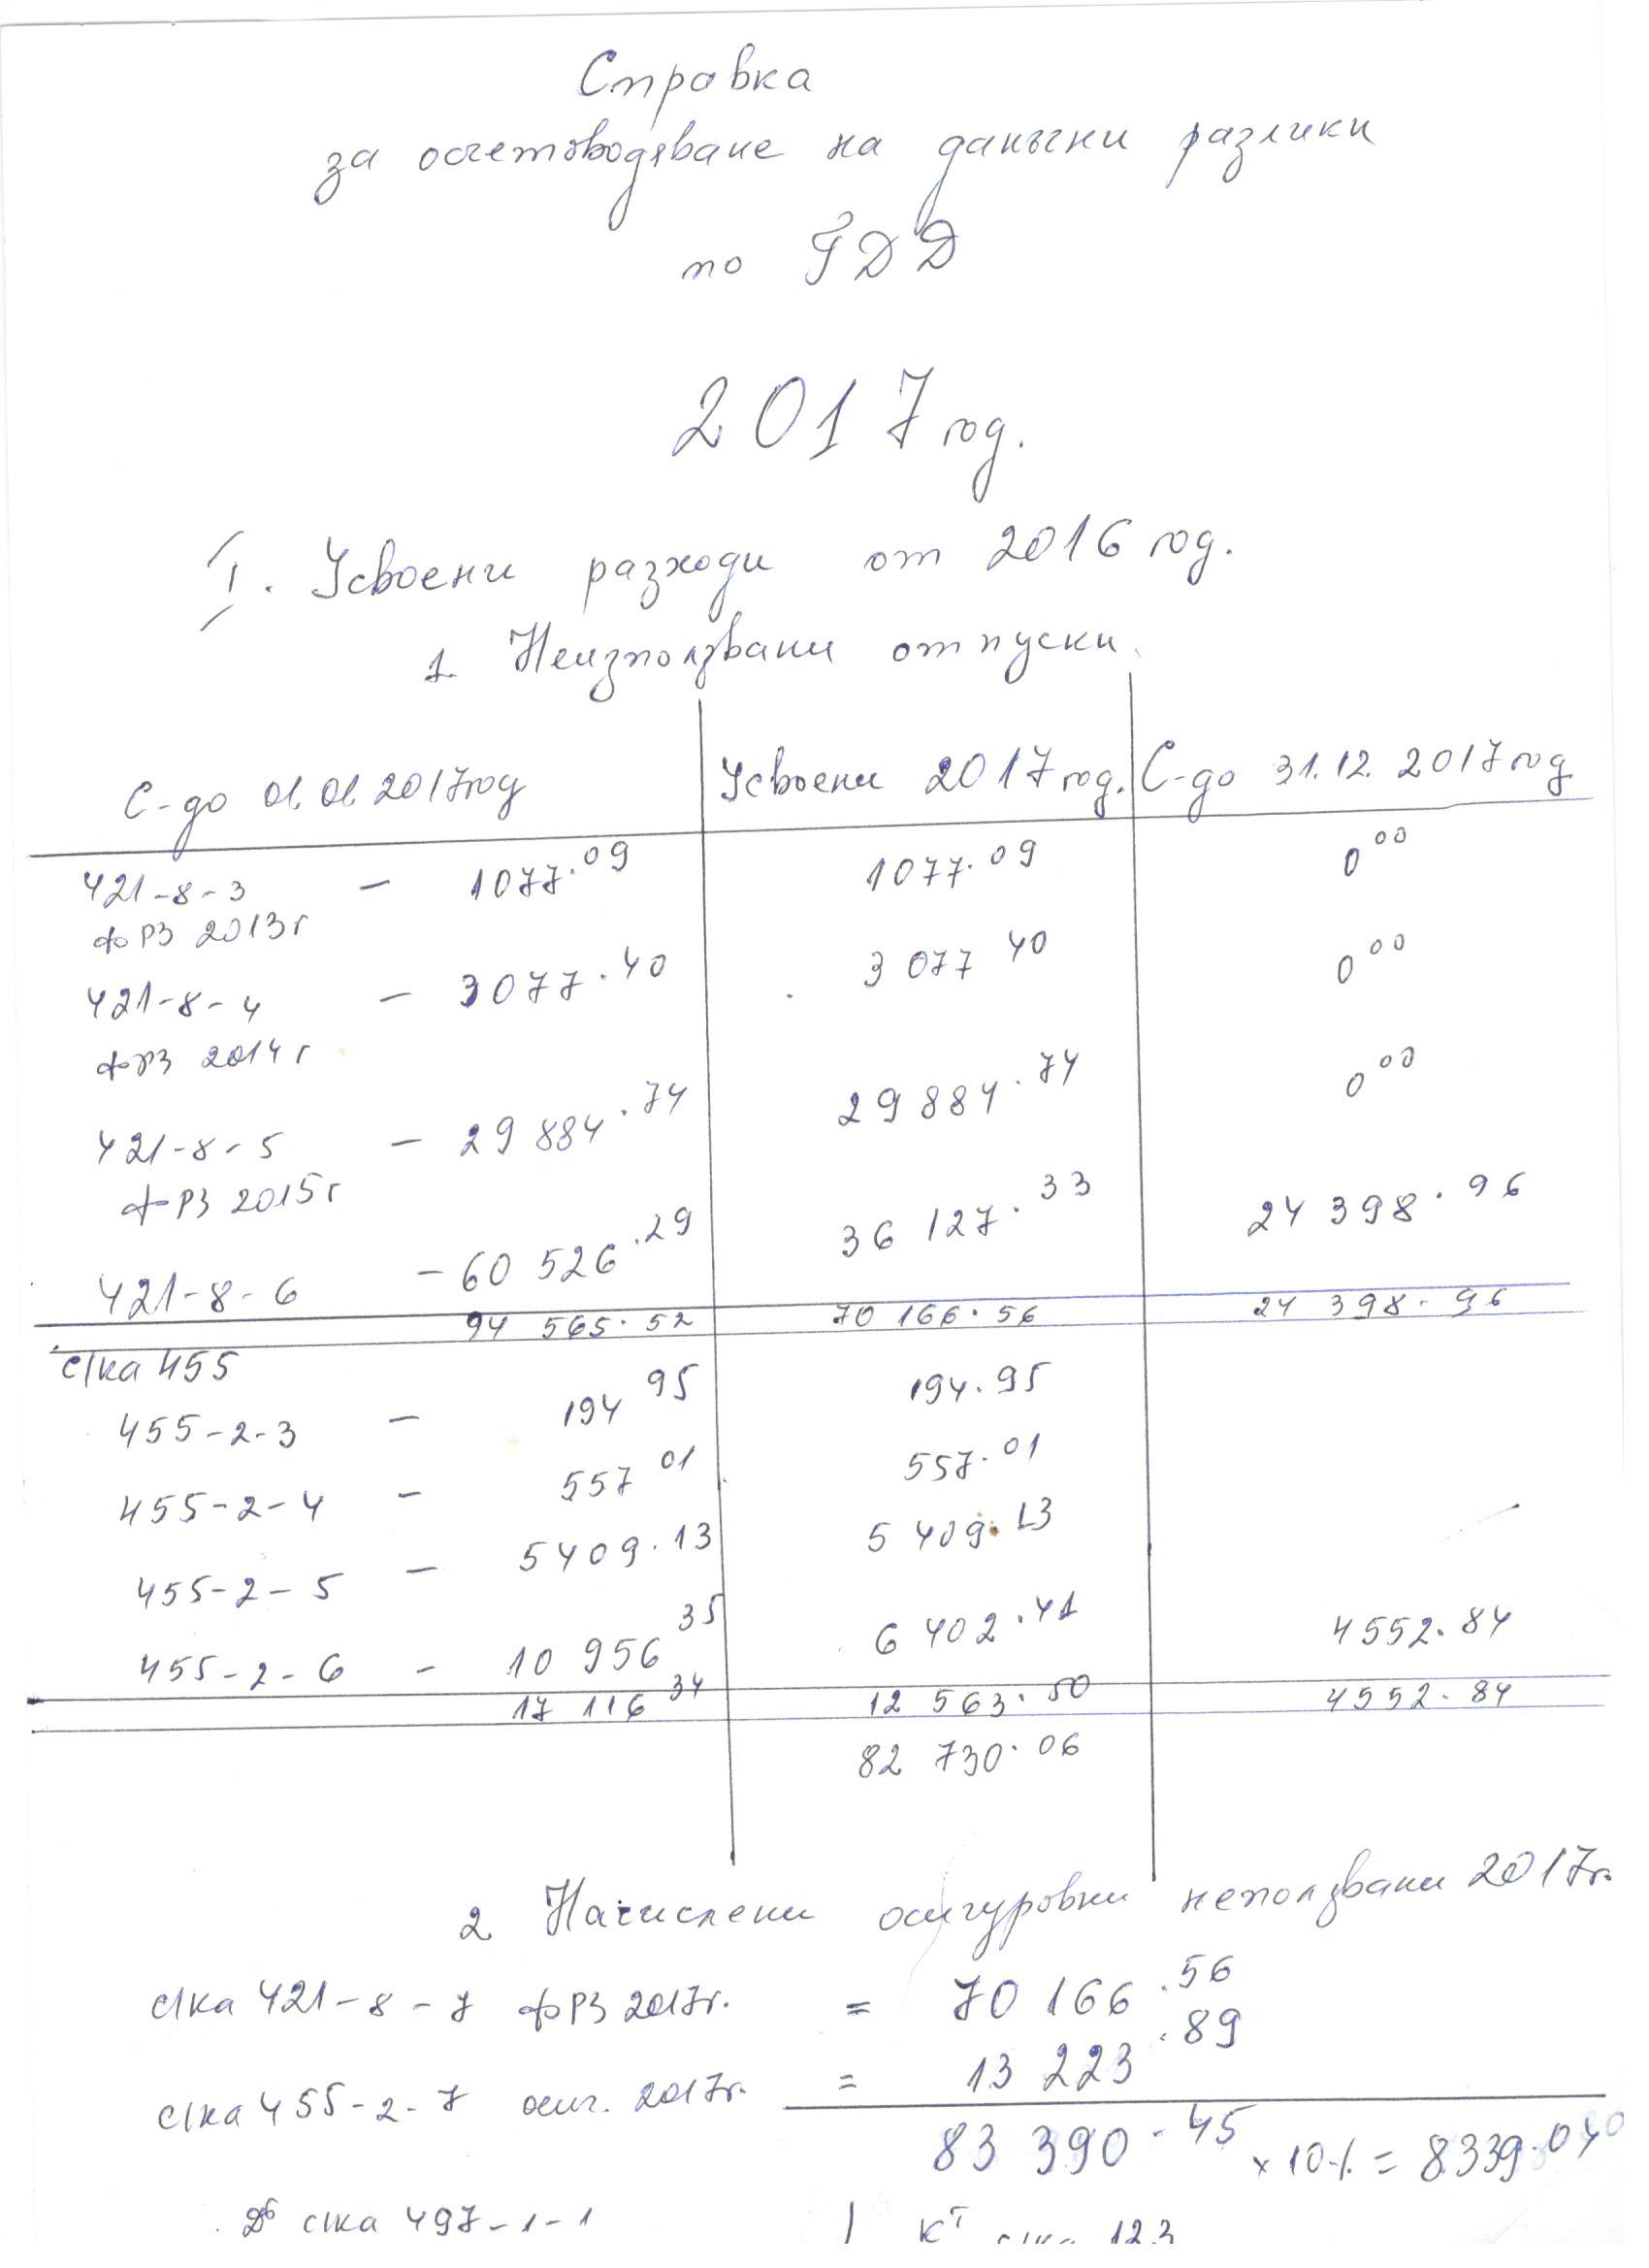 Справка
за осчетоводяване на данъчни разлики
по ГДД
2017 год.
I. Усвоени разходи от 2016 год.
1. Неизползвани отпуски.
С-до 01.01.2017год Усвоени 2017 год. С-до 31.12.2017 год
421-8-3 — 1077.09 1077.09 0 00
ф РЗ 2013 г
421-8-4 — 3077.40 3 077 40 0 00
ф РЗ 2014 г
421-8-5 — 29 884.74 29 884.74 0 00
ф РЗ 2015 г
421-8-6 — 60 526.29 36 127.33 24 398.96
94 565.52 70 166.56 24 398.96
с/ка 455
455-2-3 — 194 95 194.95
455-2-4 — 557 01 557.01
455-2-5 — 5409.13 5 409.13
455-2-6 — 10 956 35 6 402.41 4552.84
17 116 34 12 563.50 4552.84
82 730.06
2 Начислени осигуровки неползвани 2017г.
с/ка 421-8-7 ф РЗ 2017г. = 70 166.56
с/ка 455-2-7 осиг. 2017г. = 13 223.89
83 390.45 x 10% = 8339.04
Дб с/ка 497-1-1 / Кт с/ка 123